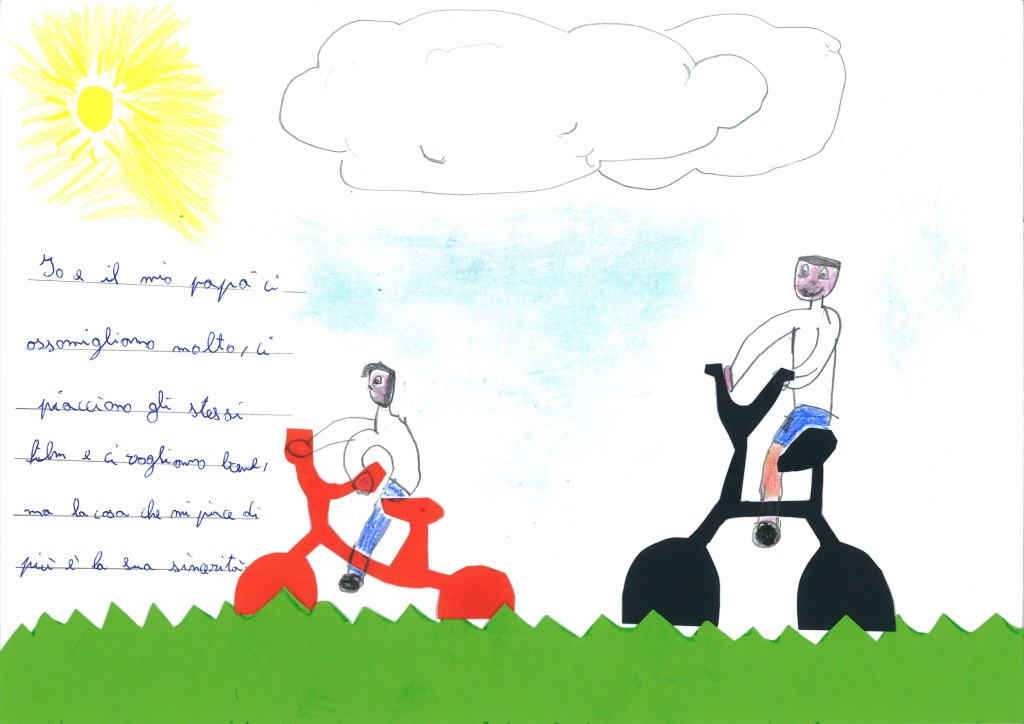 Io e il mio papà ci
assomigliamo molto, ci
piacciono gli stessi
film e ci vogliamo bene,
ma la cosa che mi piace di
più è la sua sincerità.